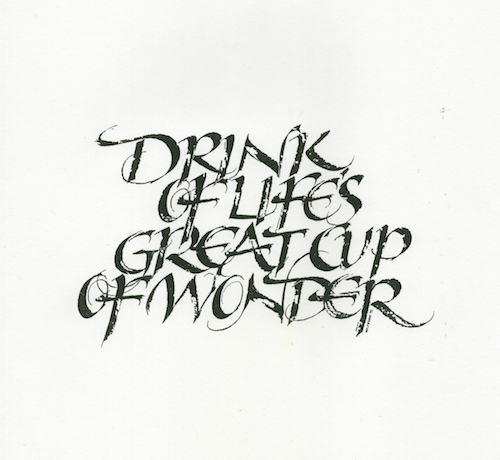 DRINK
OF LIFE'S
GREAT CUP
OF WONDER